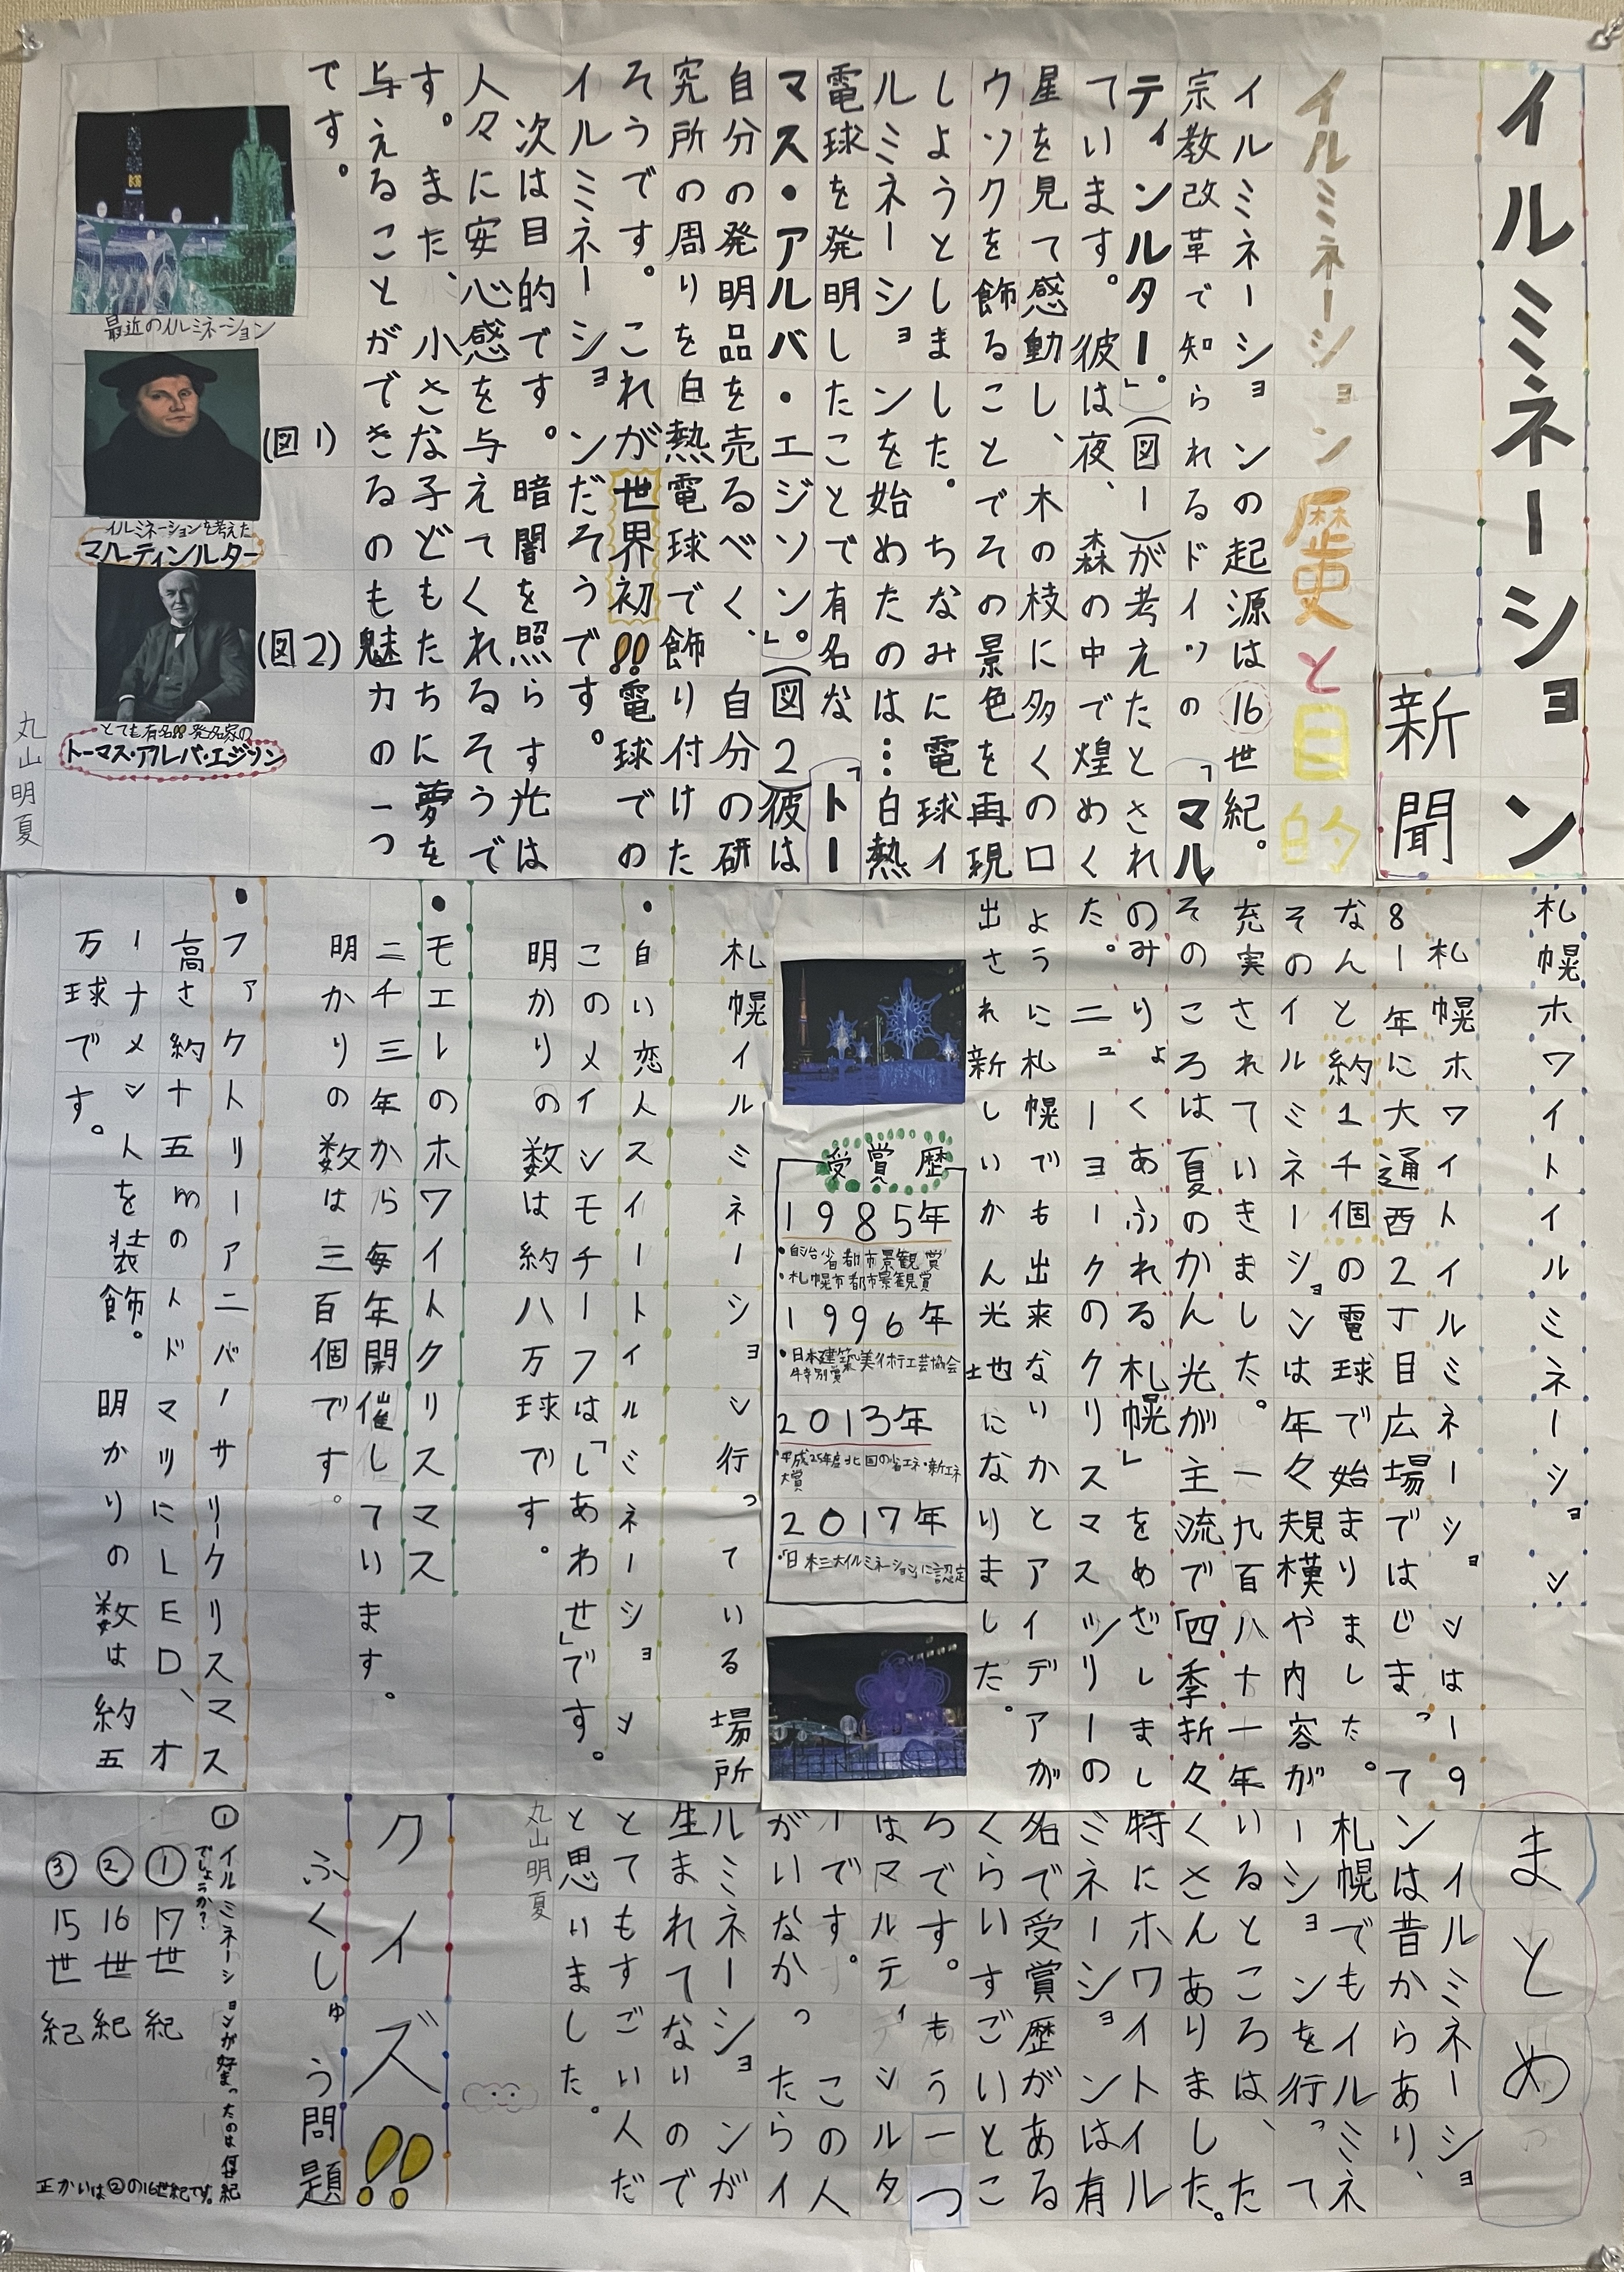 イルミネーション
新聞
イルミネーション歴史と目的
イルミネーションの起源は16世紀。
宗教改革で知られるドイツの「マル
ティンルター」。(図1)が考えたとされ
ています。彼は夜、森の中で煌めく
星を見て感動し、木の枝に多くのロ
ウソクを飾ることでその景色を再現
しようとしました。ちなみに電球イ
ルミネーションを始めたのは…白熱
電球を発明したことで有名な「トー
マス・アルバ・エジソン」。(図2)彼は
自分の発明品を売るべく、自分の研
究所の周りを白熱電球で飾り付けた
そうです。これが世界初!!電球での
イルミネーションだそうです。
次は目的です。暗闇を照らす光は
人々に安心感を与えてくれるそうで
す。また、小さな子どもたちに夢を
与えることができるのも魅力の一つ
です。
最近のイルミネーション
(図1)
イルミネーションを考えた
マルティンルター
(図2)
とても有名!!発名家の
トーマス・アルバ・エジソン
丸山明夏
札幌ホワイトイルミネーション
札幌ホワイトイルミネーションは19
81年に大通西2丁目広場ではじまって
なんと約1千個の電球で始まりました。
そのイルミネーションは年々規模や内容が
充実されていきました。一九百八十一年
そのころは夏のかん光が主流で「四季折々
のみりょくあふれる札幌」をめざしまし
た。ニューヨークのクリスマスツリーの
ように札幌でも出来ないかとアイデアが
出され新しいかん光地になりました。
受賞歴
1985年
・自治省都市景観賞
・札幌市都市景観賞
1996年
・日本建築美術工芸協会
特別賞
2013年
・平成25年度北国の省エネ・新エネ
大賞
2017年
・「日本三大イルミネーション」に認定
札幌イルミネーション行っている場所
・白い恋人スイートイルミネーション
このメインモチーフは「しあわせ」です。
明かりの数は約八万球です。
・モエレのホワイトクリスマス
二千三年から毎年開催しています。
明かりの数は三百個です。
・ファクトリーアニバーサリークリスマス
高さ約十五mのトドマツにLED、オ
ーナメント人を装飾。明かりの数は約五
万球です。
まとめ
イルミネーショ
ンは昔からあり、
札幌でもイルミネ
ーションを行って
いるところは、た
くさんありました。
特にホワイトイル
ミネーションは有
名で受賞歴がある
くらいすごいとこ
ろです。もう一つ
はマルティンルタ
ーです。この人
がいなかったらイ
ルミネーションが
生まれてないので
とてもすごい人だ
と思いました。
丸山明夏
クイズ!!
ふくしゅう問題
① イルミネーションが始まったのは何世紀
でしょうか?
① 17世紀
② 16世紀
③ 15世紀
正かいは②の16世紀です。